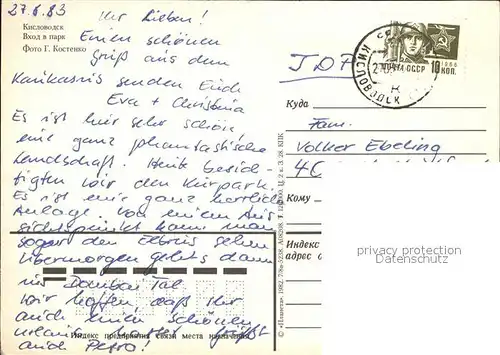 27.6.83
Кисловодск
Вход в парк
Фото Г. Костенко
Ihr Lieben!
Einen schönen
Gruß aus dem
Kaukasus senden Euch
Eva + Christina
Es ist hier sehr schön,
eine ganz phantastische
Landschaft. Heute besich-
tigten wir den Kurpark.
Es ist eine ganz herrliche
Anlage. Von einem Aus
sichtspunkt kann man
sogar den Elbrus sehen
Übermorgen gehts dann
ins Dombai Tal.
Wir hoffen, daß Ihr
auch einen schönen
Urlaub hattet. Grüßt
auch Petro!
Индекс предприятия связи места назначения
© «Планета», 1982.
КИСЛОВОДСК
ПОЧТА СССР
1966
10 КОП.
JDP
Куда
Fam.
Volker Ebeling
40
Кому
Индекс
адрес о
privacy protection
Datenschutz